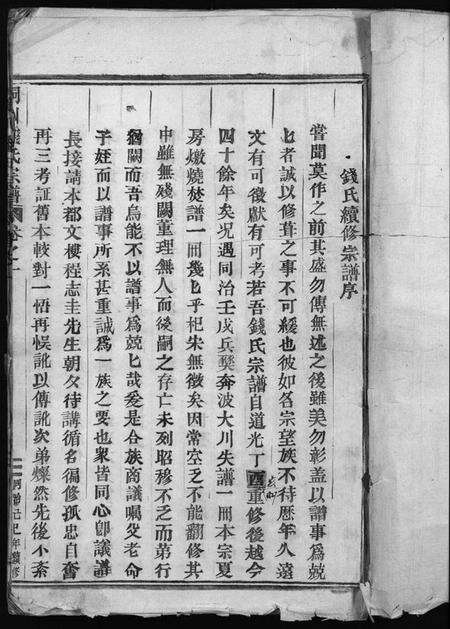 錢氏續修宗譜序
嘗聞莫作之前其盛勿傳無述之後雖美勿彰蓋以譜事爲兢
匕者誠以修葺之事不可緩也彼如名宗望族不待歷年久遠
文有可徵獻有可考若吾錢氏宗譜自道光丁酉重修後越今
四十餘年矣况遇同治壬戌兵燹奔波大川失譜一冊本宗夏
房燉燒焚譜一冊幾匕乎杞朱無徵矣因常空乏不能翻修其
中雖無殘闕董理無人而後嗣之存亡未列昭穆不乏而第行
猶闕而吾烏能不以譜事爲兢匕哉爰是合族商議囑父老命
子姪而以譜事所系甚重誠爲一族之要也衆皆同心卽議譜
長接請本都文樓程志圭先生朝夕待講循名徧修孤忠自奮
再三考証舊本較對一悟再悞訛以傳訛次弟燦然先後不紊
氏宗譜
同治己巳年續修